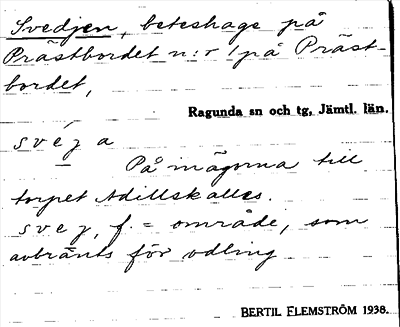 Svedjen, beteshage på
Prästbordet n:r 1 på Präst-
bordet,
Ragunda sn och tg, Jämtl. län.
svéj a
På mägorna till
torpet Adillskalles.
svej, f. = område, som
avbränts för odling
BERTIL FLEMSTRÖM 1938.